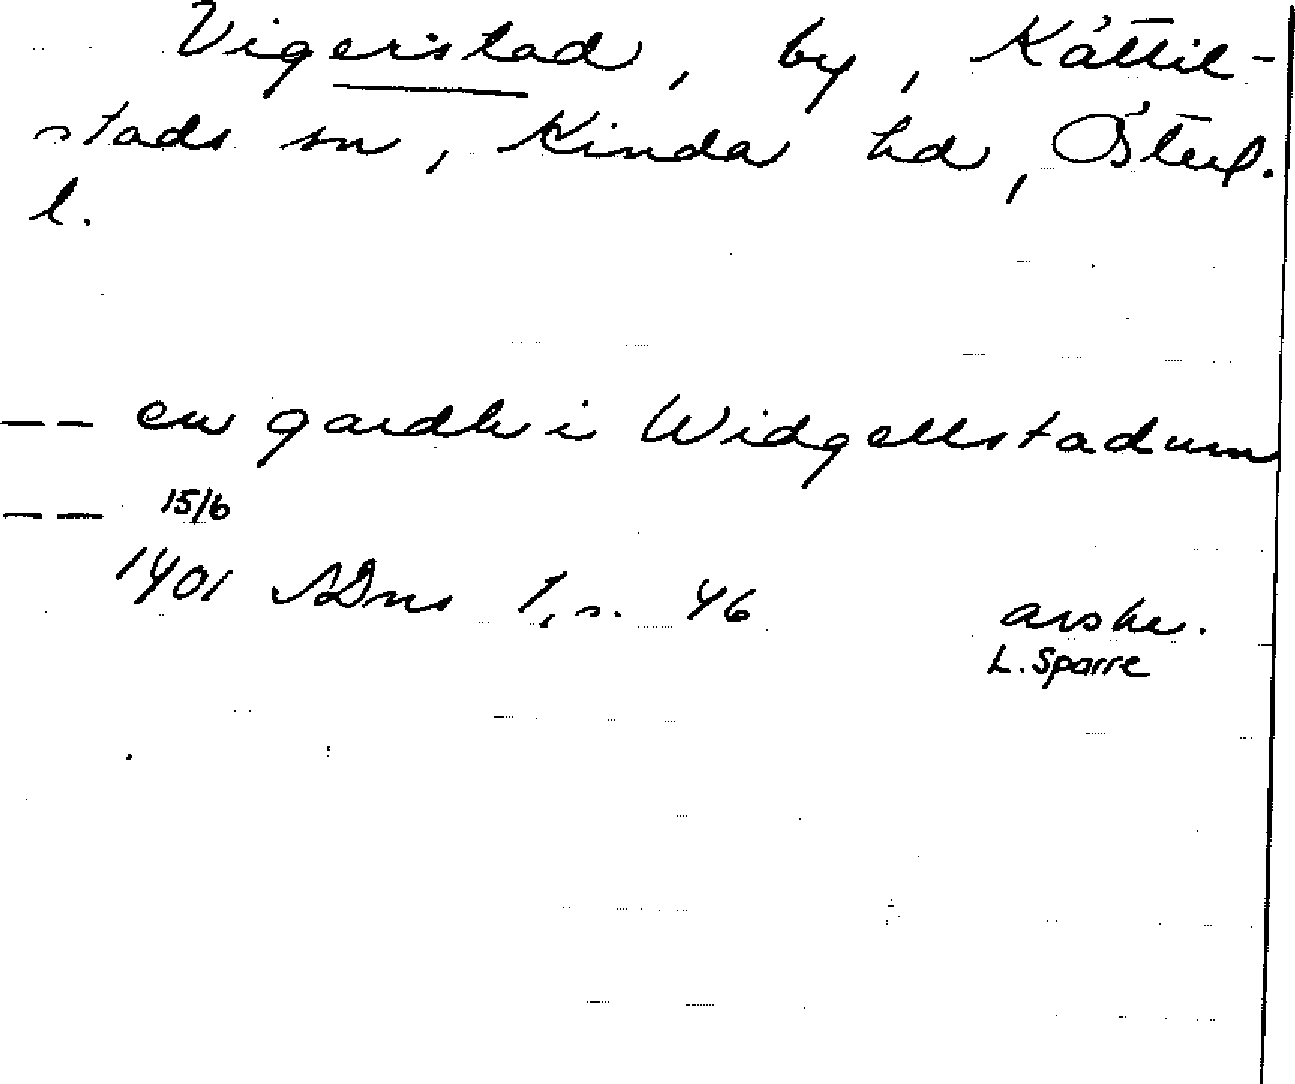 Vigerstad, by, Kättil-
stads sn, Kinda hd, Österg.
l.
-- en gardh i Widgellstadum
-- 15/6
1401 SDns 1, s. 46 avskr.
L. Sparre